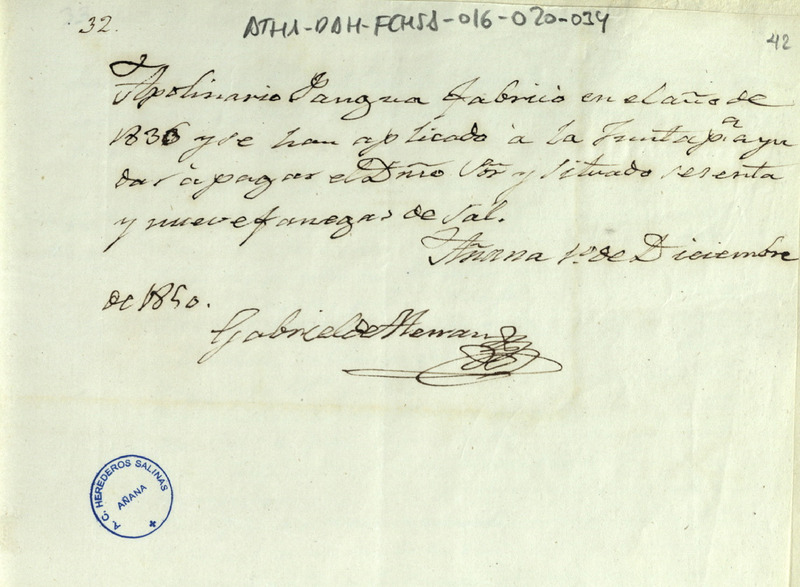 32.
ATHA-DAH-FCHSA-016-020-034
42
Apolinario Pangua fabricó en el año de
1836 y se han aplicado à la Junta p.a ayu
dar à pagar el Dmo Sr y situado sesenta
y nueve fanegas de sal.
Añana 1º de Diciembre
de 1850.
Gabriel de Herran
A. C. HEREDEROS SALINAS
AÑANA